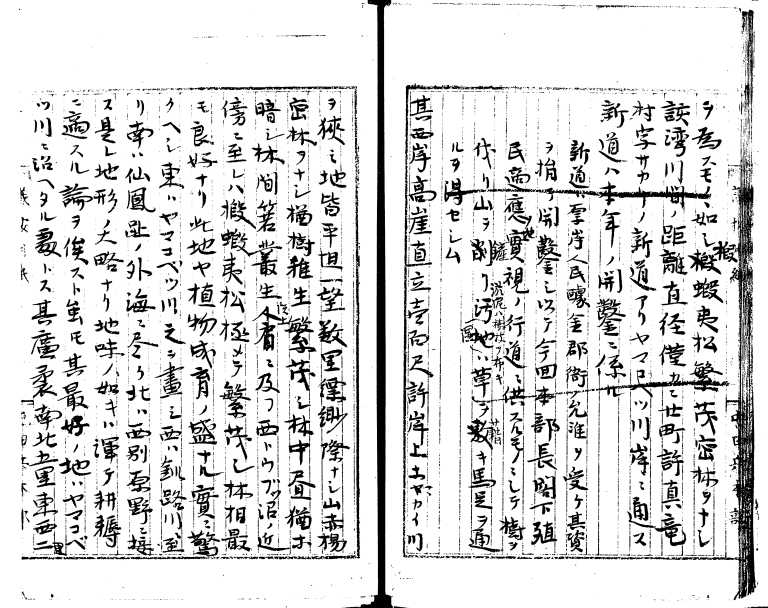 ヲ為スモノノ如シ椴蝦夷松繁茂密林ヲナシ
該湾川間ノ距離直径僅カニ廿町許真竜
村字サカリノ新道アリヤマコベツ川岸ニ通ス
新道ハ本年ノ開鑿ニ係ル
新道ハ厚岸人民醵金郡衙ノ允准ヲ受ケ其資
ヲ捐テ開鑿シ以テ今回本部長閣下殖
民適應地實視ノ行道ニ供スルモノニシテ樹ヲ
伐リ山ヲ削リ汚地ハ草ヲ敷キ馬足ヲ通
ルヲ得セシム
其西岸高崖直立壹百尺許岸上土
ヲ狹シ地皆平坦一望数里縹緲際ナシ山赤楊
密林ヲナシ楢樹雜生繁茂シ林中昼猶ホ
暗シ林間箬叢生人肩ニ及フ西トウブツ沼ノ近
傍ニ至レハ椴蝦夷松極メテ繁茂シ林相最
モ良好ナリ此地ヤ植物成育ノ盛ナル實ニ驚
クヘシ東ハヤマコベツ川之ヲ畫シ西ハ釧路川ニ至
リ南ハ仙鳳趾ノ外海ニ尽ク北ハ西別原野ニ接
ス是レ地形ノ大略ナリ地味ノ如キハ渾テ耕耨
ニ適スル論ヲ俟スト虽モ其最好ノ地ハヤマコベ
ツ川ニ沿ヘタル處トス其廣袤南北五里東西二